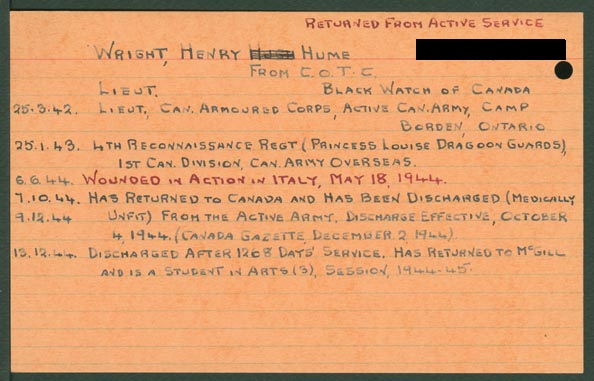 RETURNED FROM ACTIVE SERVICE
WRIGHT, HENRY HUGH HUME
FROM C.O.T.C.
LIEUT. BLACK WATCH OF CANADA
25.3.42. LIEUT., CAN. ARMOURED CORPS, ACTIVE CAN. ARMY, CAMP
BORDEN, ONTARIO
25.1.43. 4TH RECONNAISSANCE REGT (PRINCESS LOUISE DRAGOON GUARDS),
1ST CAN. DIVISION, CAN. ARMY OVERSEAS.
6.6.44. WOUNDED IN ACTION IN ITALY, MAY 18, 1944.
7.10.44. HAS RETURNED TO CANADA AND HAS BEEN DISCHARGED (MEDICALLY
9.12.44 UNFIT) FROM THE ACTIVE ARMY. DISCHARGE EFFECTIVE, OCTOBER
4, 1944. (CANADA GAZETTE, DECEMBER 2, 1944).
13.12.44. DISCHARGED AFTER 1268 DAYS' SERVICE. HAS RETURNED TO MCGILL
AND IS A STUDENT IN ARTS (3), SESSION, 1944-45.